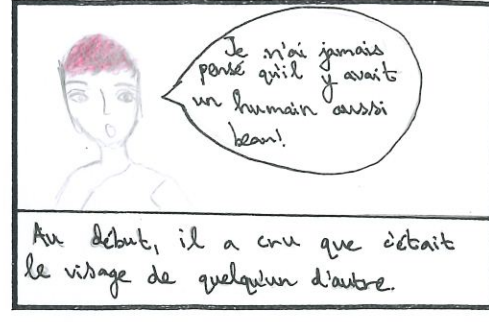 Je n'ai jamais
pensé qu'il y avait
un humain aussi
beau!
Au début, il a cru que c'était
le visage de quelqu'un d'autre.